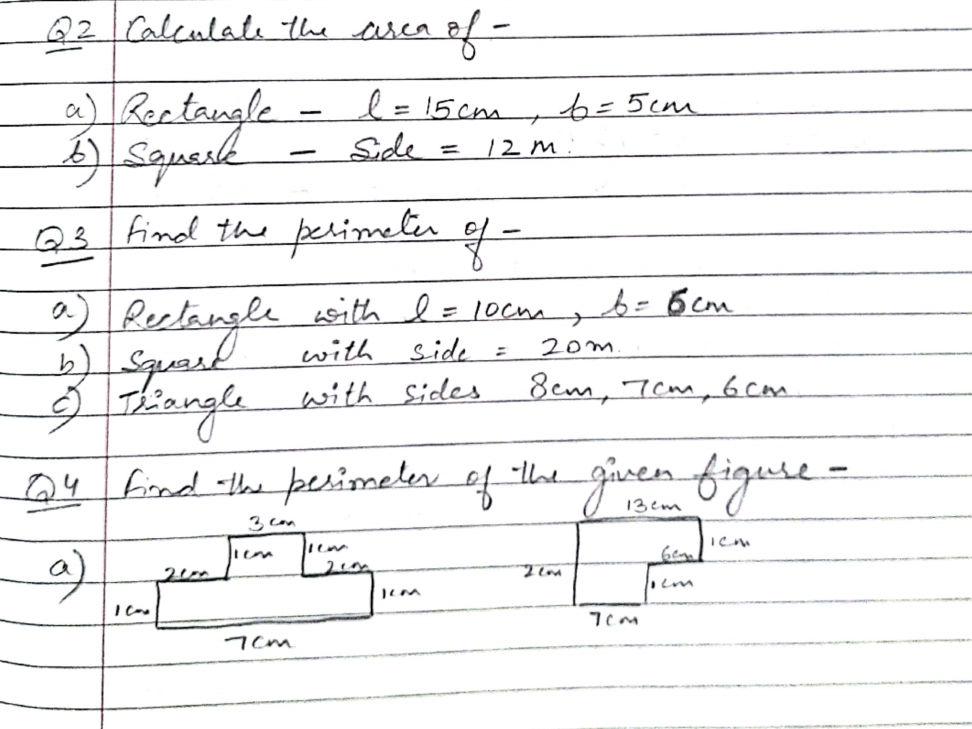 Q2 Calculate the area of -
a) Rectangle - l = 15cm , b = 5cm
b) Square - Side = 12 m.
Q3 find the perimeter of -
a) Rectangle with l = 10cm , b = 6cm
b) Square with side = 20m.
c) Triangle with sides 8cm, 7cm, 6cm
Q4 find the perimeter of the given figure -
3 cm 13cm
a) 1cm 1cm 1cm
2cm 2cm 2cm 6cm
1cm 1cm 1cm
7cm 7cm